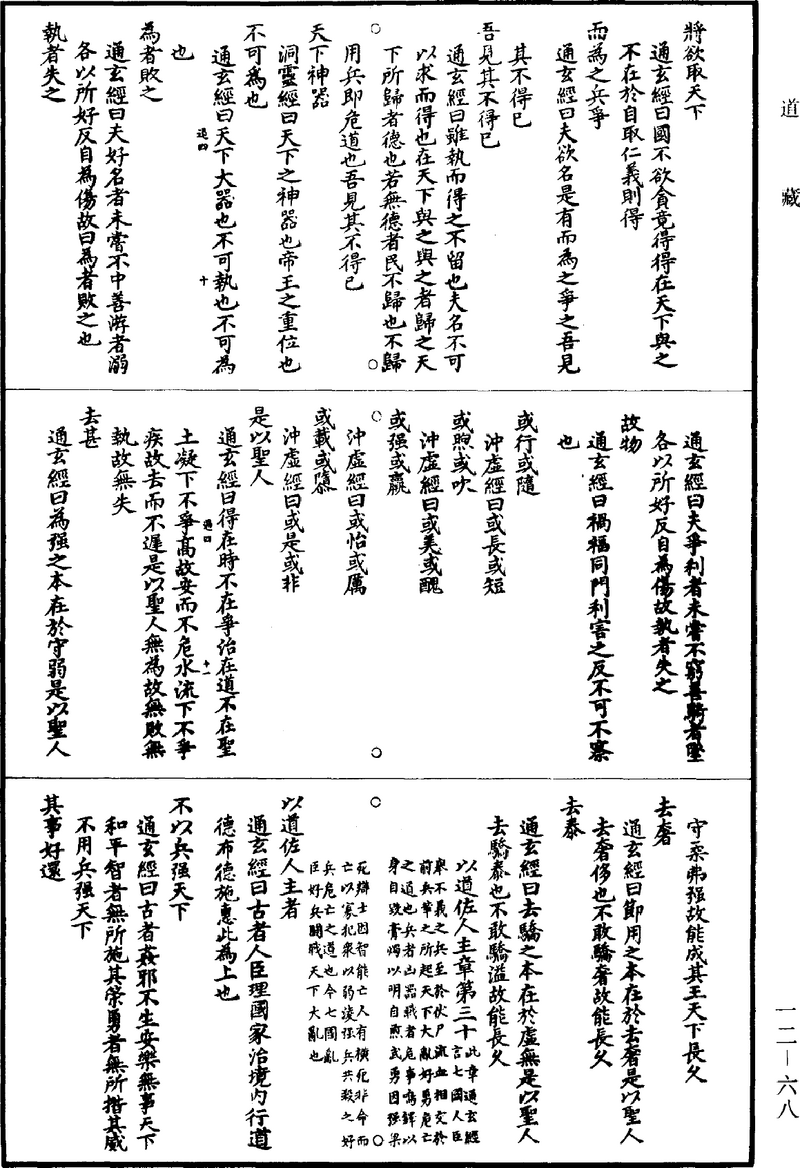 道藏
將欲取天下
通玄經曰國不欲貪竟得得在天下與之
不在於自取仁義則得
而為之兵爭
通玄經曰夫欲名是有而為之爭之吾見
其不得已
吾見其不得已
通玄經曰雖執而得之不留也夫名不可
以求而得也在天下與之與之者歸之天
下所歸者德也若無德者民不歸也不歸
用兵即危道也吾見其不得已
天下神器
洞靈經曰天下之神器也帝王之重位也
不可為也
通玄經曰天下大器也不可執也不可為
道四 十
也
為者敗之
通玄經曰夫好名者未嘗不中善游者溺
各以所好反自為傷故曰為者敗之也
執者失之
通玄經曰夫爭利者未嘗不窮善騎者墜
各以所好反自為傷故執者失之
故物
通玄經曰禍福同門利害之反不可不察
也
或行或隨
沖虛經曰或長或短
或煦或吹
沖虛經曰或美或醜
或强或羸
沖虛經曰或怡或厲
或載或隳
沖虛經曰或是或非
是以聖人
通玄經曰得在時不在爭治在道不在聖
土凝下不爭高故安而不危水流下不爭
道四 十一
疾故去而不遲是以聖人無為故無敗無
執故無失
去甚
通玄經曰為强之本在於守弱是以聖人
守柔弗强故能成其王天下長久
去奢
通玄經曰節用之本在於去奢是以聖人
去奢侈也不敢驕奢故能長久
去泰
通玄經曰去驕之本在於虛無是以聖人
去驕泰也不敢驕溢故能長久
以道佐人主章第三十
此章通玄經
言七國人臣
舉不義之兵至於伏尸流血相交於
前兵革之所起天下大亂好勇危亡
之道也兵者凶器戰者危事鳴鐸以
身自毀膏燭以明自煎武勇因强梁
死辯士因智能亡人有橫死非命而
亡以寡犯衆以弱淩强兵共殺之好
兵危亡之道也今七國亂
臣好兵鬪戰天下大亂也
以道佐人主者
通玄經曰古者人臣理國家治境內行道
德布德施惠此為上也
不以兵强天下
通玄經曰古者姦邪不生安樂無事天下
和平智者無所施其榮勇者無所措其威
不用兵强天下
其事好還
一二－六八